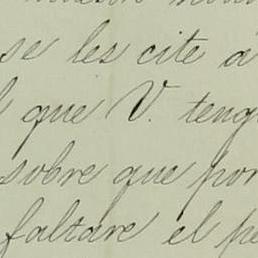 se les cite á
que V. teng
sobre que por
faltare el pe